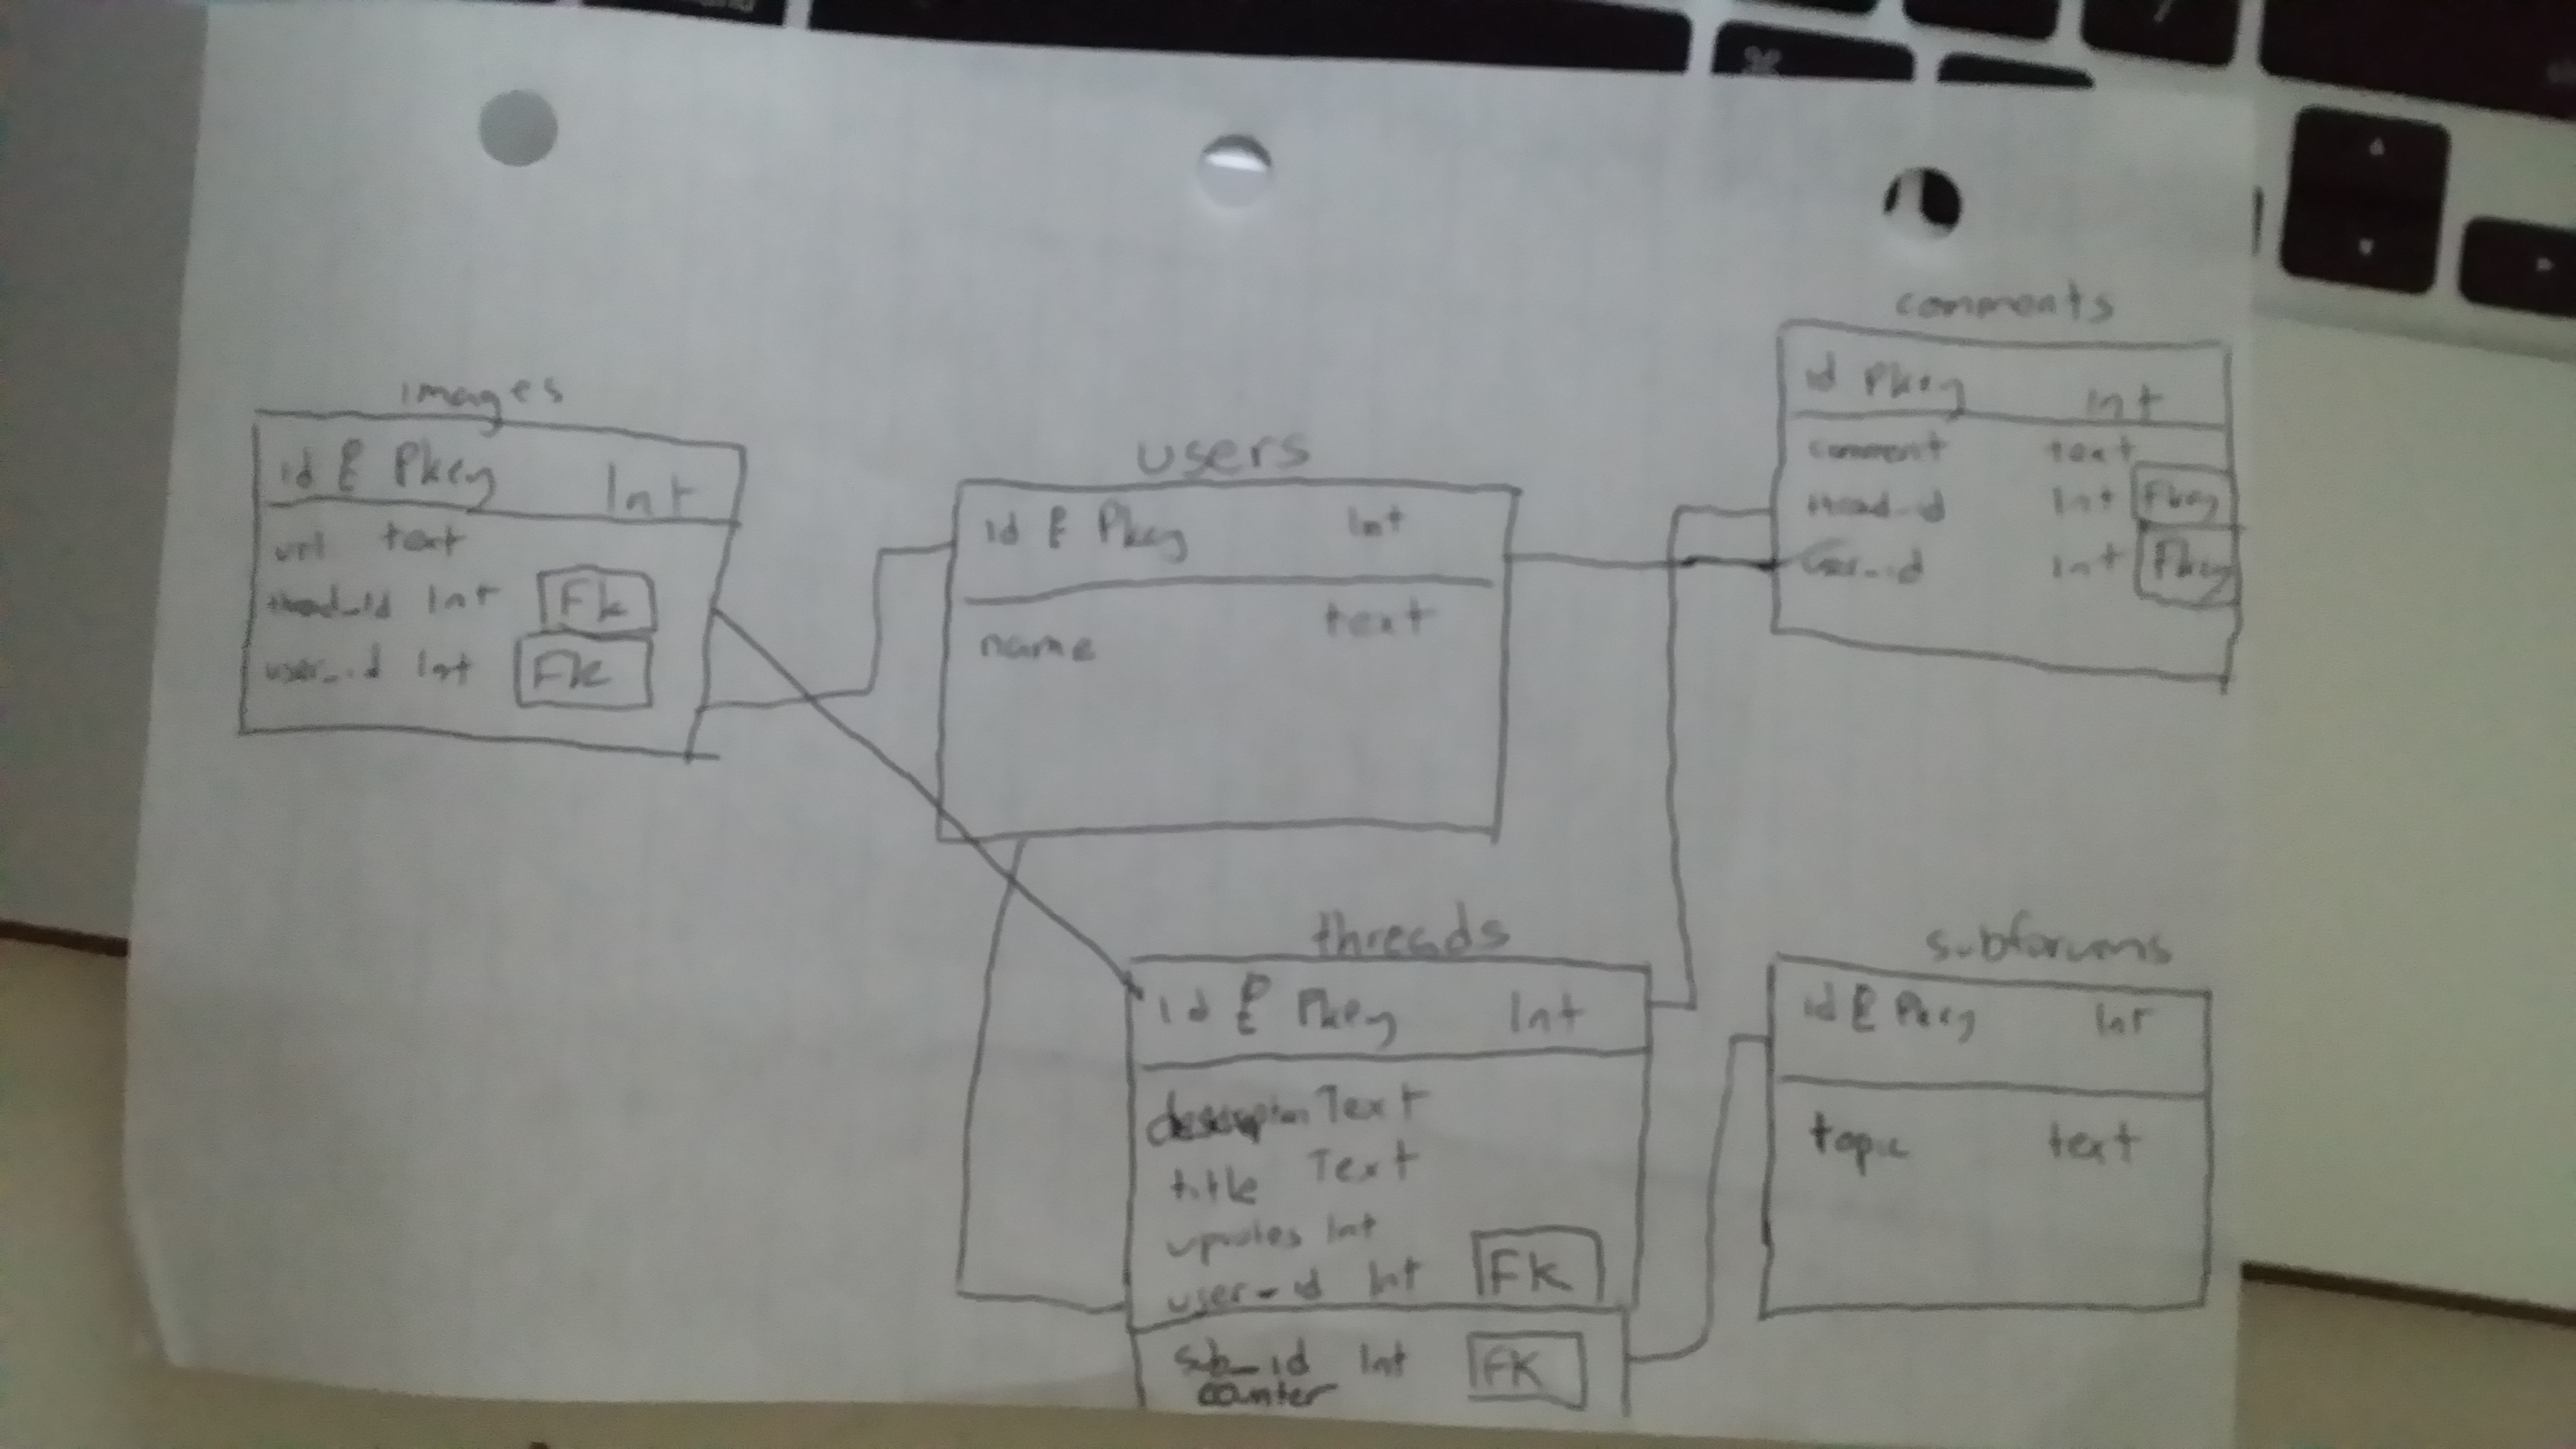 images
id & Pkey Int
url text
thread_id Int Fk
user_id Int Fk
users
id & Pkey Int
name text
comments
id Pkey int
comment text
thread_id Int Fkey
user_id int Fkey
threads
id & Pkey Int
description Text
title Text
upvotes Int
user_id Int FK
sub_id Int FK
counter
subforums
id & Pkey Int
topic text